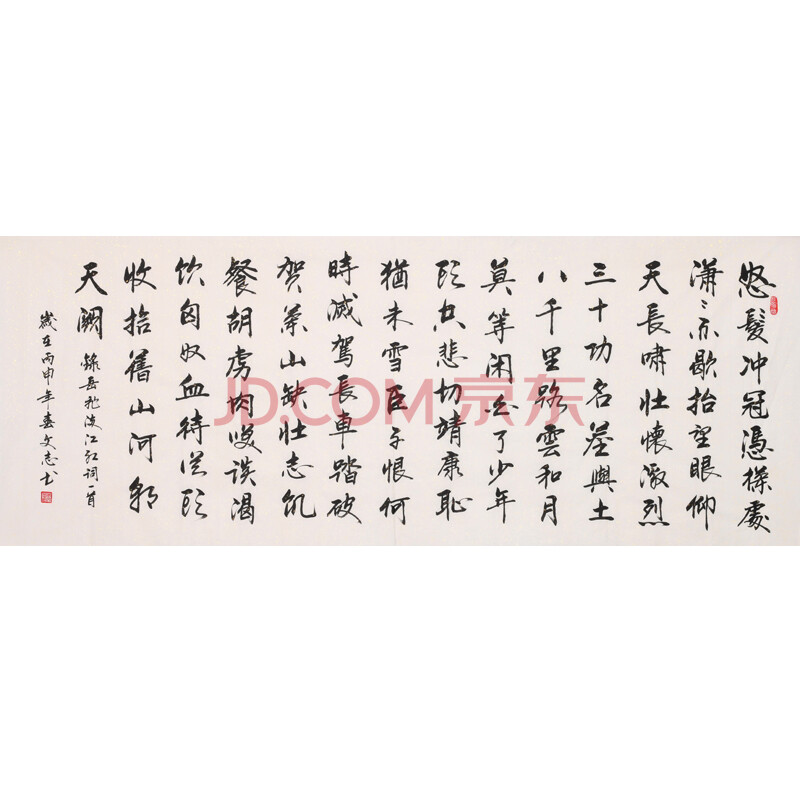 怒髮冲冠憑欄處
潇〻雨歇抬望眼仰
天長嘯壮懷激烈
三十功名塵與土
八千里路雲和月
莫等闲白了少年
頭空悲切靖康恥
猶未雪臣子恨何
時滅駕長車踏破
賀蘭山缺壮志飢
餐胡虏肉笑談渴
饮匈奴血待從頭
收拾舊山河朝
天闕 錄岳飛满江红词一首
歲在丙申年春文志书
JD.COM 京东